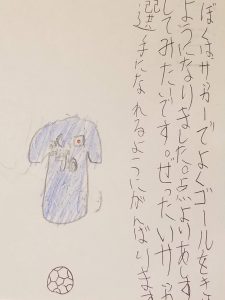 ぼくはサッカーでよくゴールをき
ようになりました。点よりあしす
してみたいです。ぜったいサッ
選手になれるようにがんばります